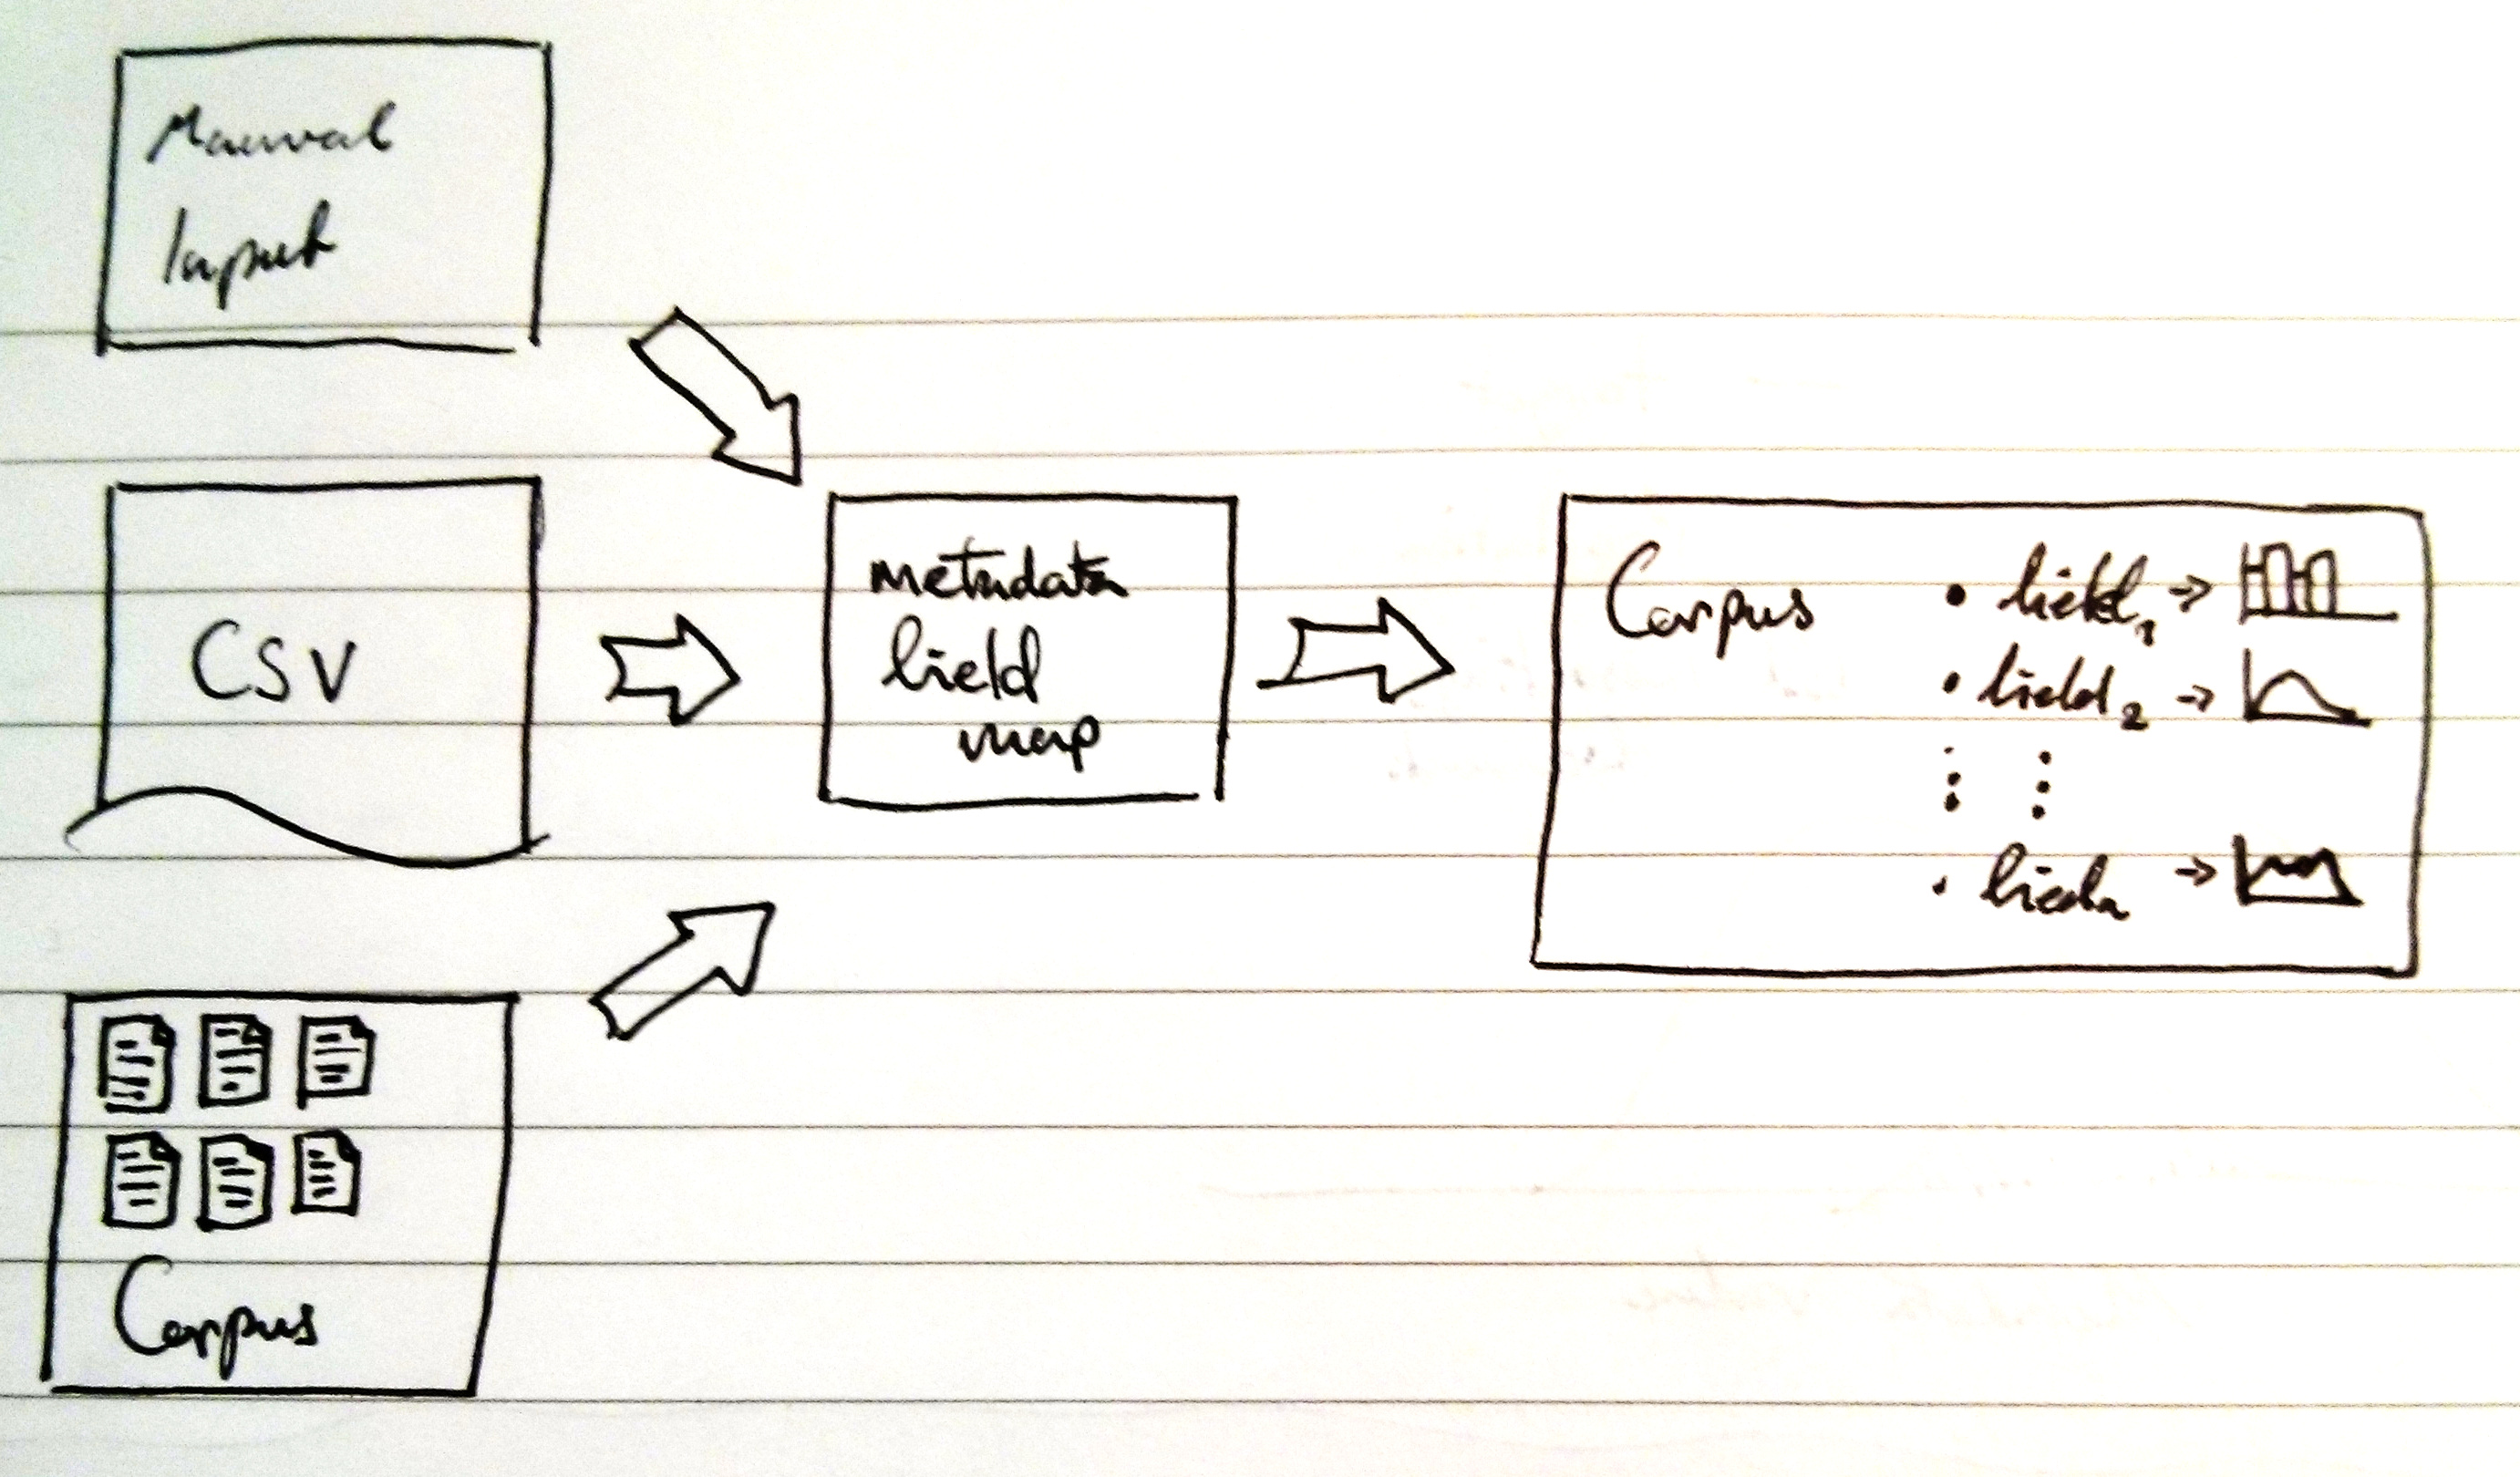 Manual
Input
CSV
Corpus
metadata
field
map
Corpus
• field₁ →
• field₂ →
• fieldn →